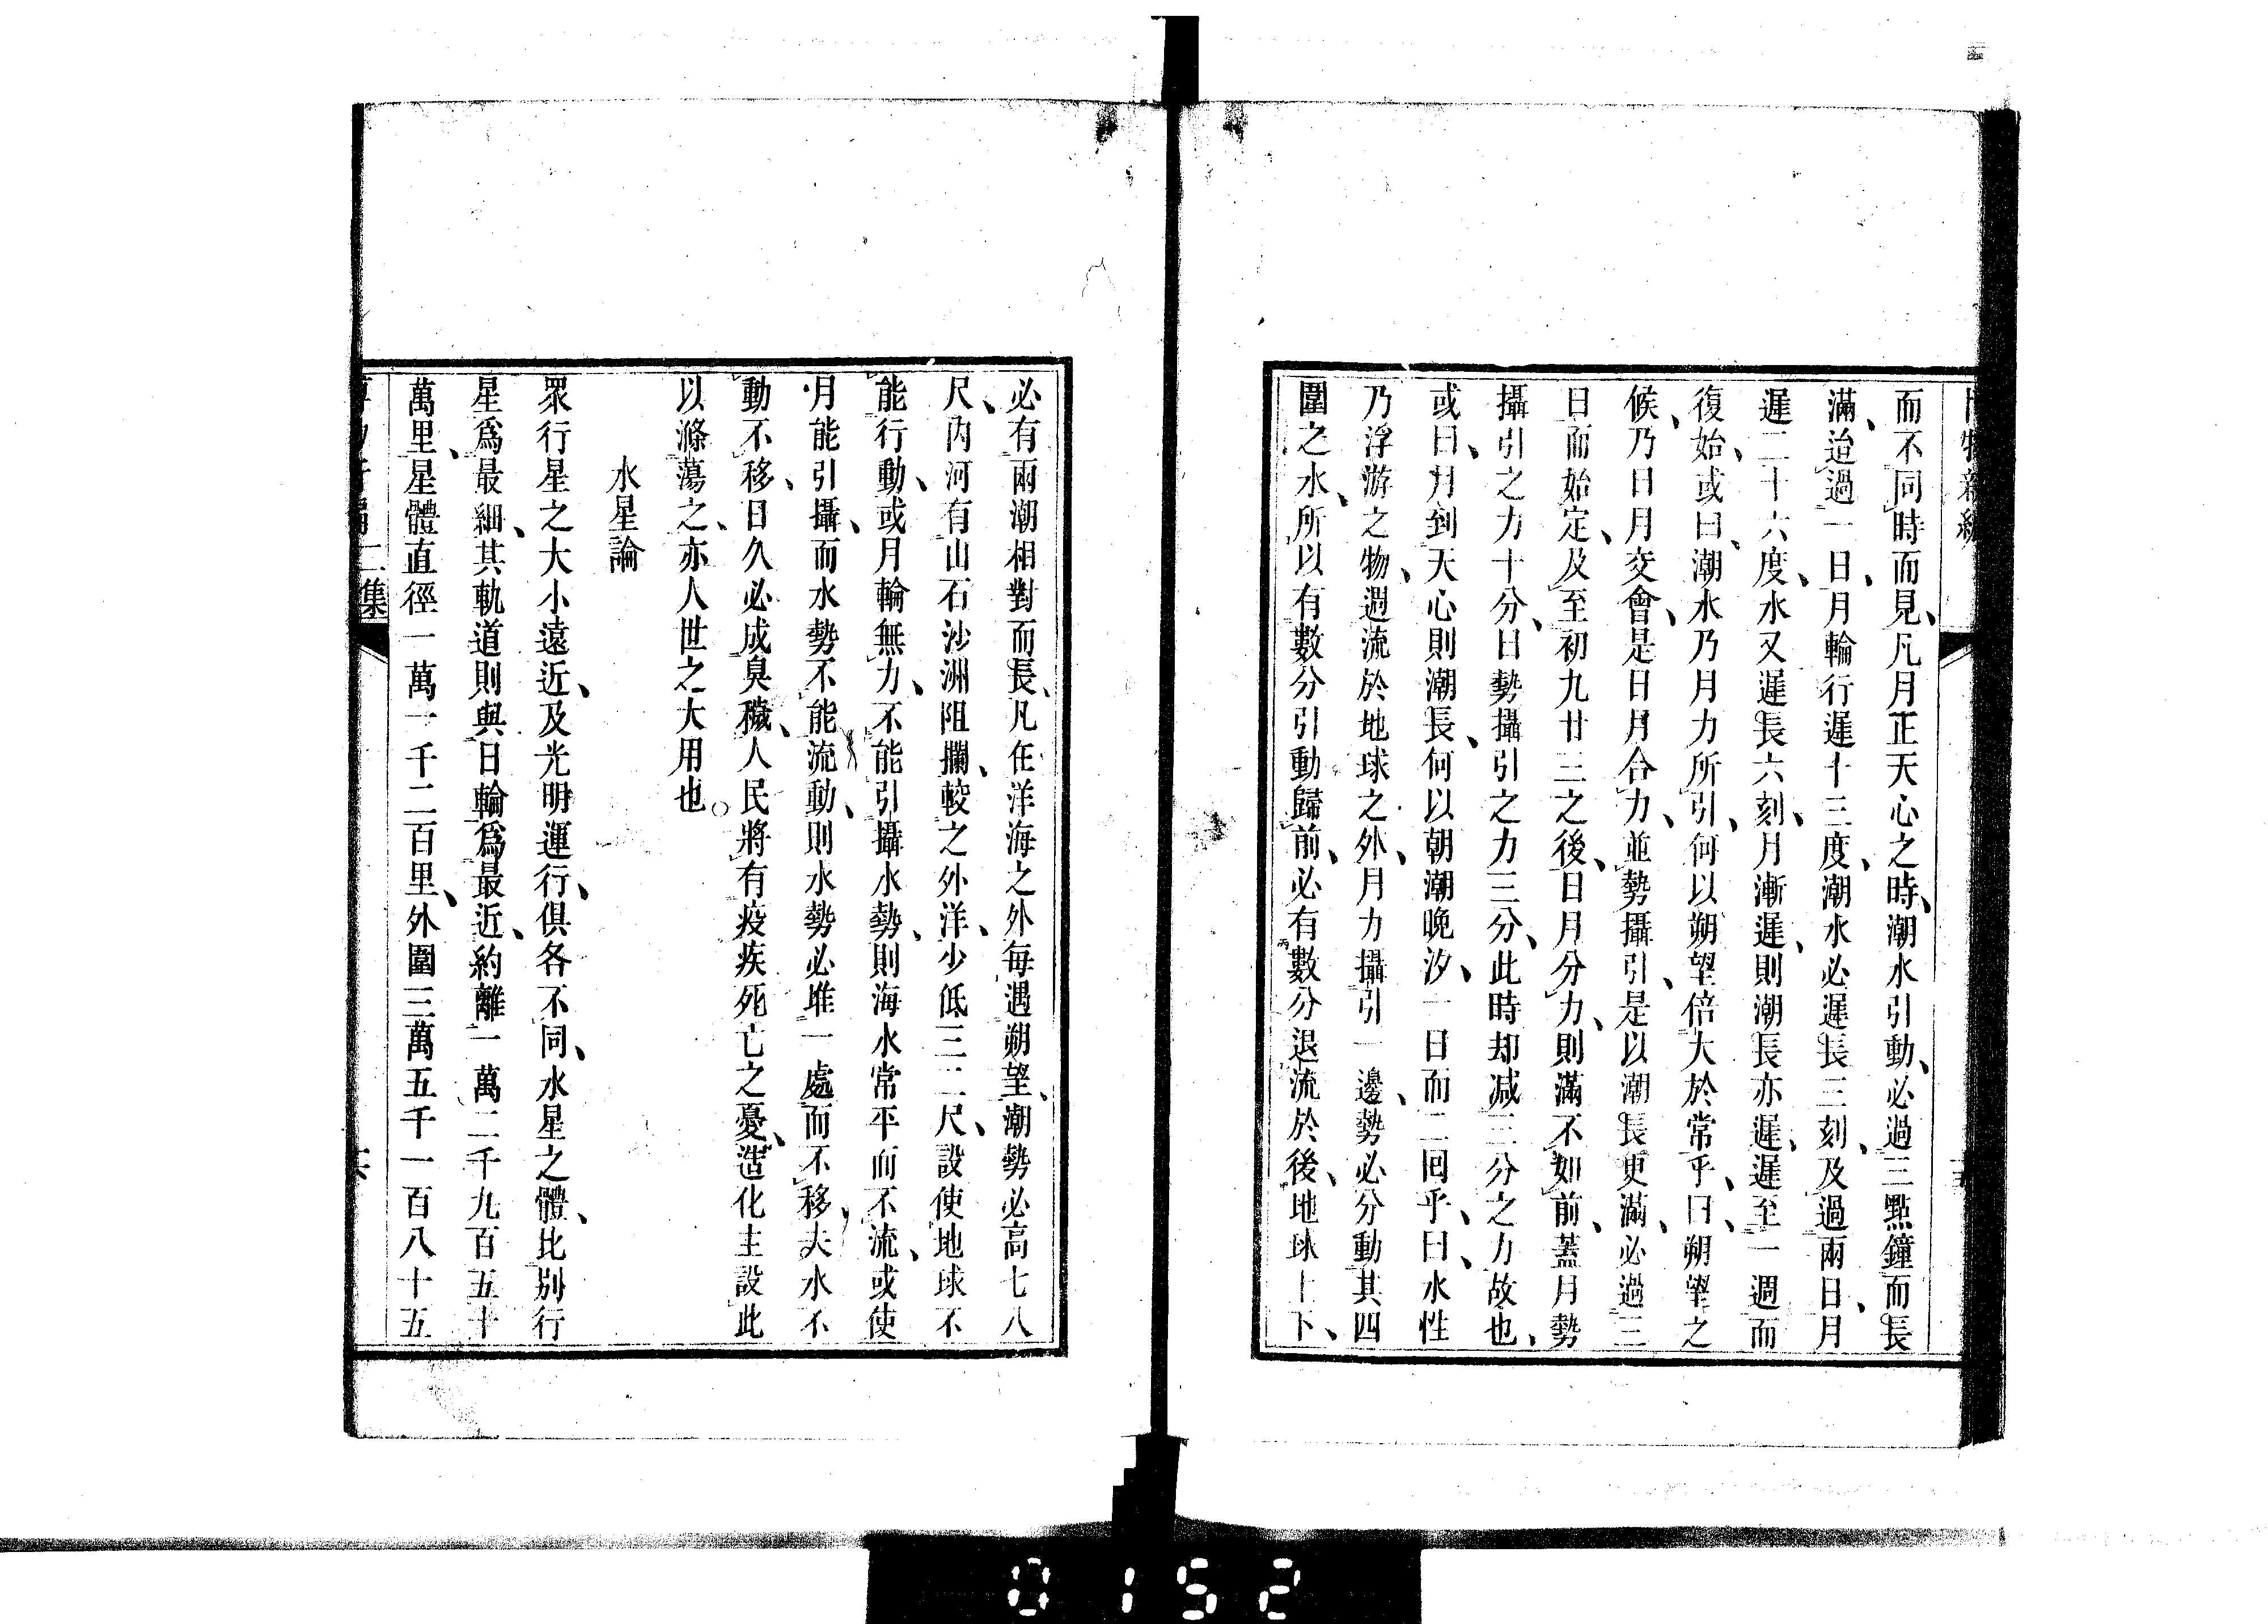 博物新編
而不同時而見、凡月正天心之時、潮水引動、必過三點鐘而長
滿、迨過一日、月輪行遲十三度、潮水必遲長三刻、及過兩日、月
遲二十六度、水又遲長六刻、月漸遲、則潮長亦遲、遲至一週而
復始、或曰、潮水乃月力所引、何以朔望倍大於常乎、曰、朔望之
候、乃日月交會、是日月合力、並勢攝引、是以潮長更滿、必過三
日而始定、及至初九廿三之後、日月分力、則滿不如前、蓋月勢
攝引之力十分、日勢攝引之力三分、此時却減三分之力故也、
或曰、月到天心則潮長、何以朝潮晚汐、一日而二回乎、曰、水性
乃浮游之物、週流於地球之外、月力攝引一邊、勢必分動其四
圍之水、所以有數分引動歸前、必有數分退流於後、地球上下、
必有兩潮相對而長、凡在洋海之外每遇朔望、潮勢必高七八
尺、內河有山石沙洲阻攔、較之外洋、少低三二尺、設使地球不
能行動、或月輪無力、不能引攝水勢、則海水常平而不流、或使
月能引攝、而水勢不能流動、則水勢必堆一處而不移、夫水不
動不移、日久必成臭穢、人民將有疫疾死亡之憂、造化主設此
以滌蕩之、亦人世之大用也。
水星論
眾行星之大小遠近、及光明運行、俱各不同、水星之體、比別行
星爲最細、其軌道則與日輪爲最近、約離一萬二千九百五十
萬里、星體直徑一萬一千二百里、外圍三萬五千一百八十五
二集
0152